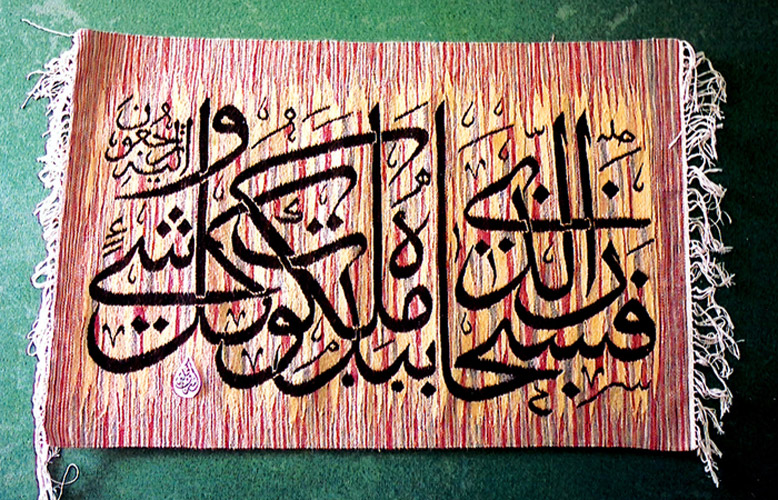 فسبحان الذي بيده ملكوت كل شيء و
إليه ترجعون